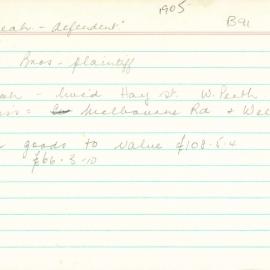 1905
eah - defendent B91
Bros - plaintiff
ah - lived Hay St. W. Perth
ss = Melbourne Rd & Wel
goods to value £108.5.4
£66.3.10